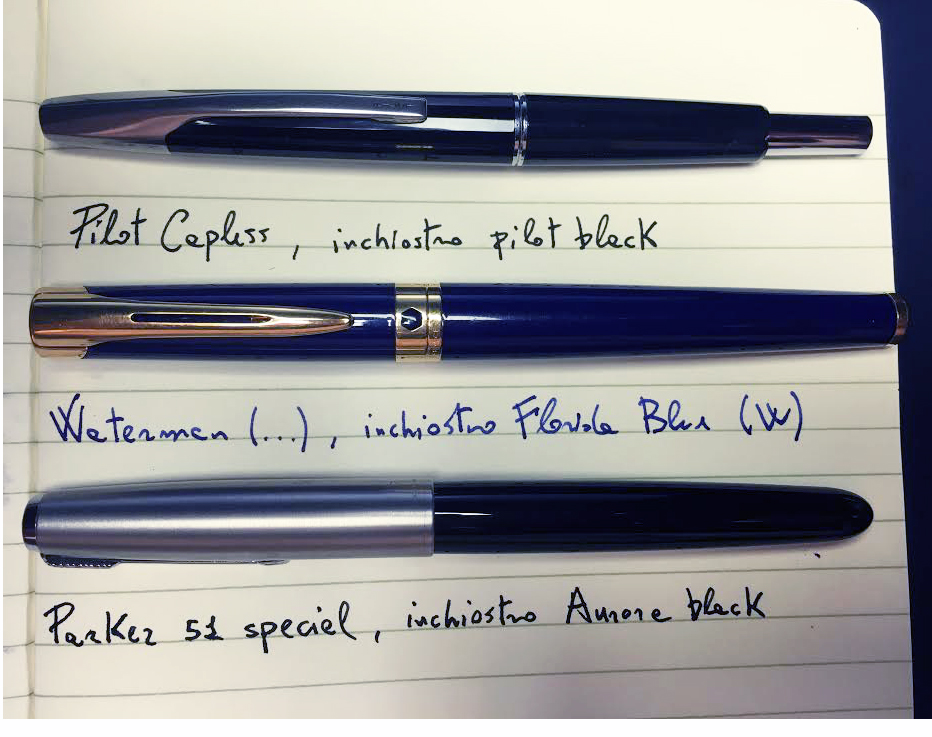 Pilot Capless, inchiostro pilot black
Waterman (...), inchiostro Florida Blue (W)
Parker 51 special, inchiostro Aurora black